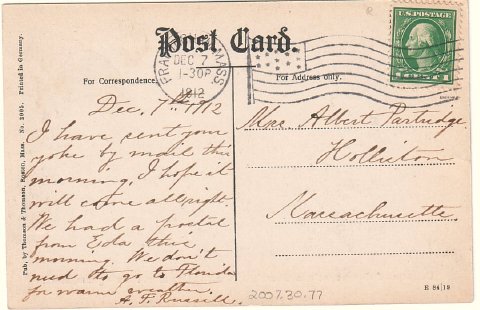 Post Card.
U.S. POSTAGE
FRA MASS.
DEC 7
1-30P
1912
For Correspondence.
For Address only.
Dec. 7th 1912
I have sent your
yoke by mail this
morning, I hope it
will come allright.
We had a postal
from Eda this
morning. We don't
need to go to Florida
for warm weather.
A. F. Russell.
Mrs Albert Partridge
Holliston
Massachusetts.
Pub. by Thomson & Thomson, Boston, Mass. No. 2005. Printed in Germany.
2007.30.77
E 84|19